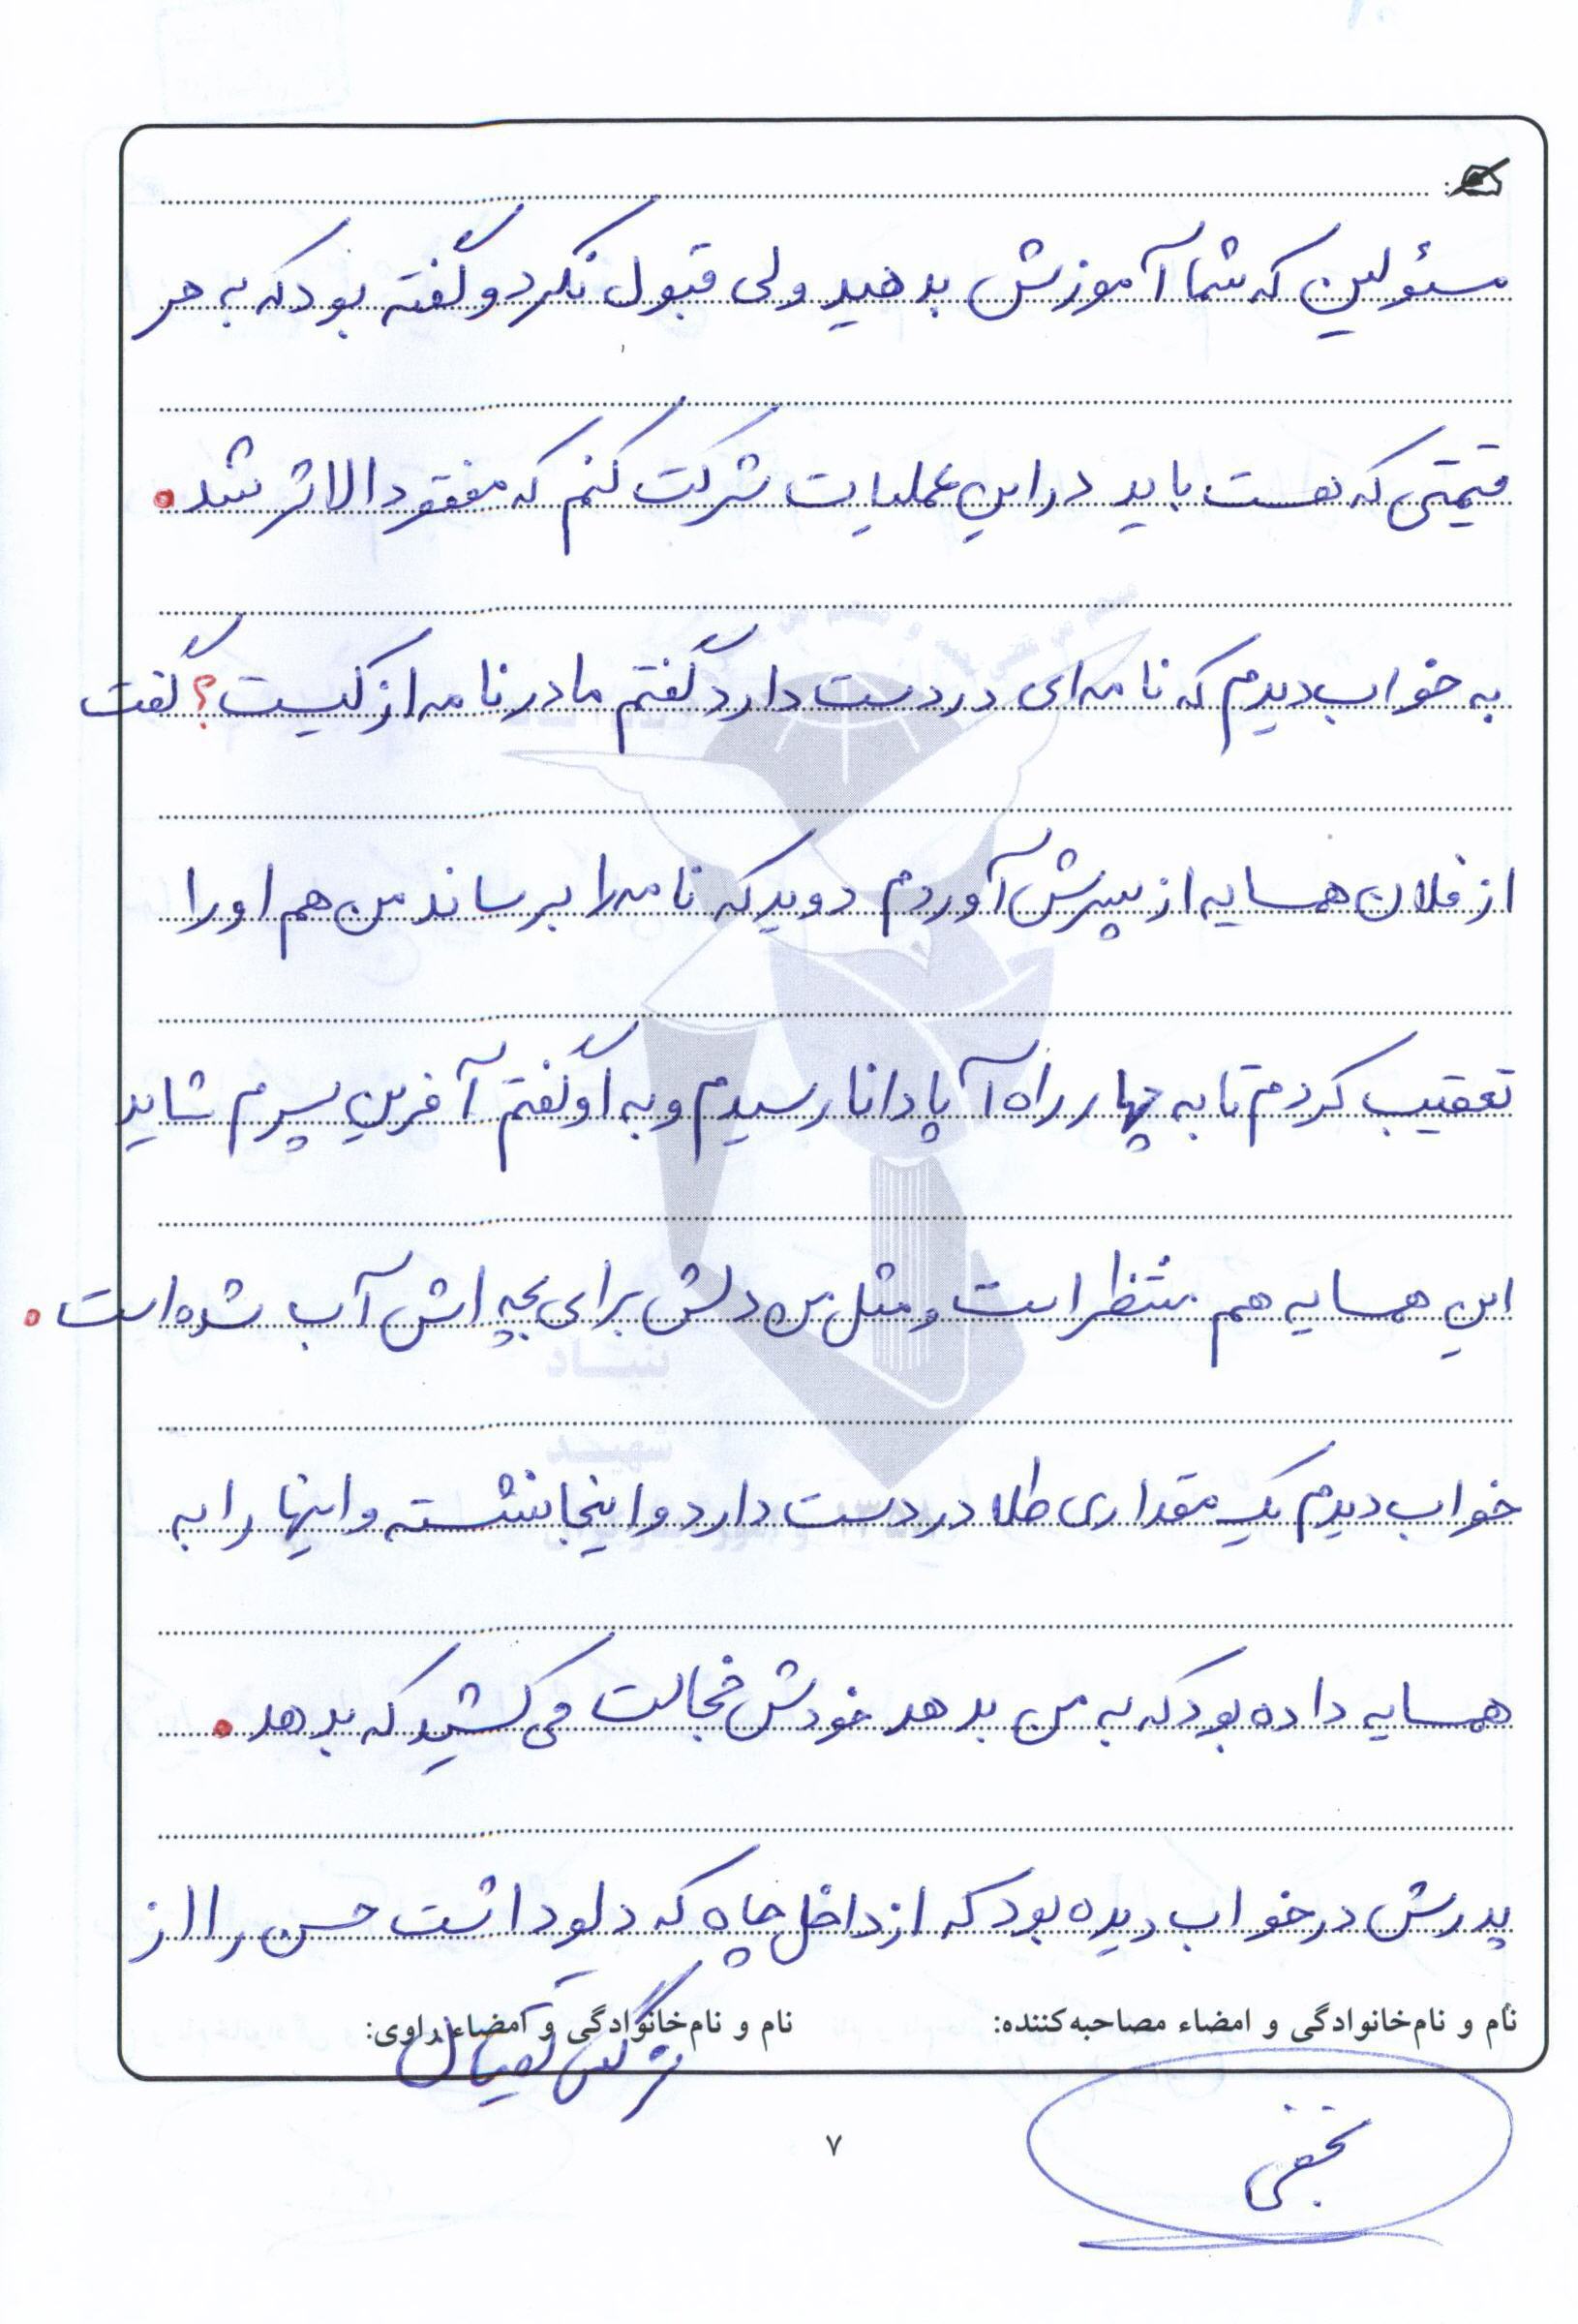 مسئولین که شما آموزش بدهید ولی قبول نکرد و گفته بود که به هر
قیمتی که هست باید در این عملیات شرکت کنم که مفقودالاثر شد.
به خواب دیدم که نامه‌ای در دست دارد گفتم مادر نامه از کیست؟ گفت
از فلان همسایه از پسرش آوردم دوید که نامه را برساند من هم او را
تعقیب کردم تا به چهار راه آپادانا رسیدم و به او گفتم آفرین پسرم شاید
این همسایه هم منتظر است و مثل من دلش برای بچه اش آب شده است.
خواب دیدم یک مقداری طلا در دست دارد و اینجا نشسته و اینها را به
همسایه داده بود که به من بدهد خودش خجالت می کشید که بدهد.
پدرش در خواب دیده بود که از داخل چاه که دلو داشت حسن را از
نام و نام‌خانوادگی و امضاء مصاحبه‌کننده: نام و نام‌خانوادگی و امضاء راوی:
نجفی
۷
بنیاد
شهید